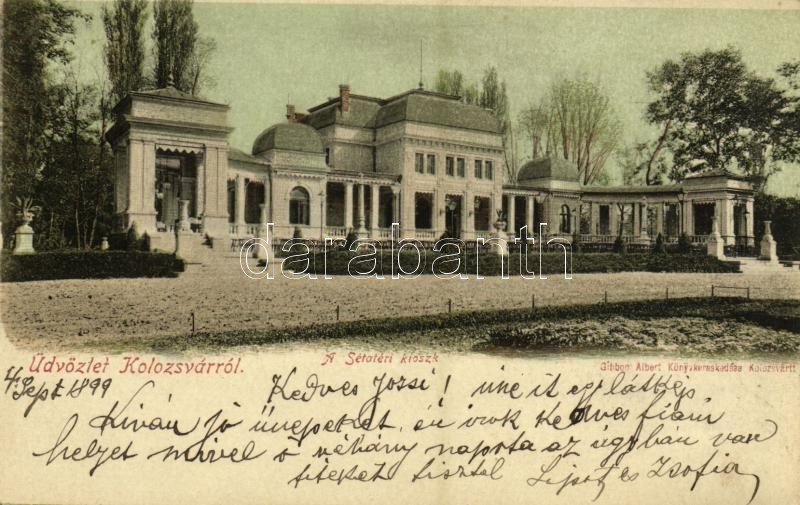 darabanth
Üdvözlet Kolozsvárról.
A Sétatéri kioszk
Gibbon Albert Könyvkereskedése Kolozsvártt
4 Sept 1899
Kedves Jozsi! üne it egy látkép
Kiván jó ünepeket, én irok Kedves fiam
helyet mivel ö néhány naposta az ágyban van
titeket tisztel Lipot es Zsofia